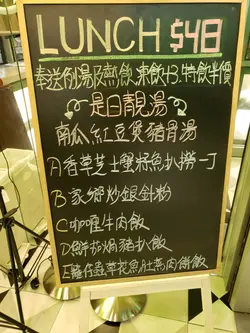 LUNCH $48
奉送例湯及熱飲,凍飲+3.特飲半價
是日靚湯
南瓜紅豆煲豬骨湯
A香草芝士蟹籽魚扒撈丁
B家鄉炒銀針粉
C咖喱牛肉飯
D鮮茄焗豬扒飯
E蘿白蟲草花魚肚蒸肉餅飯